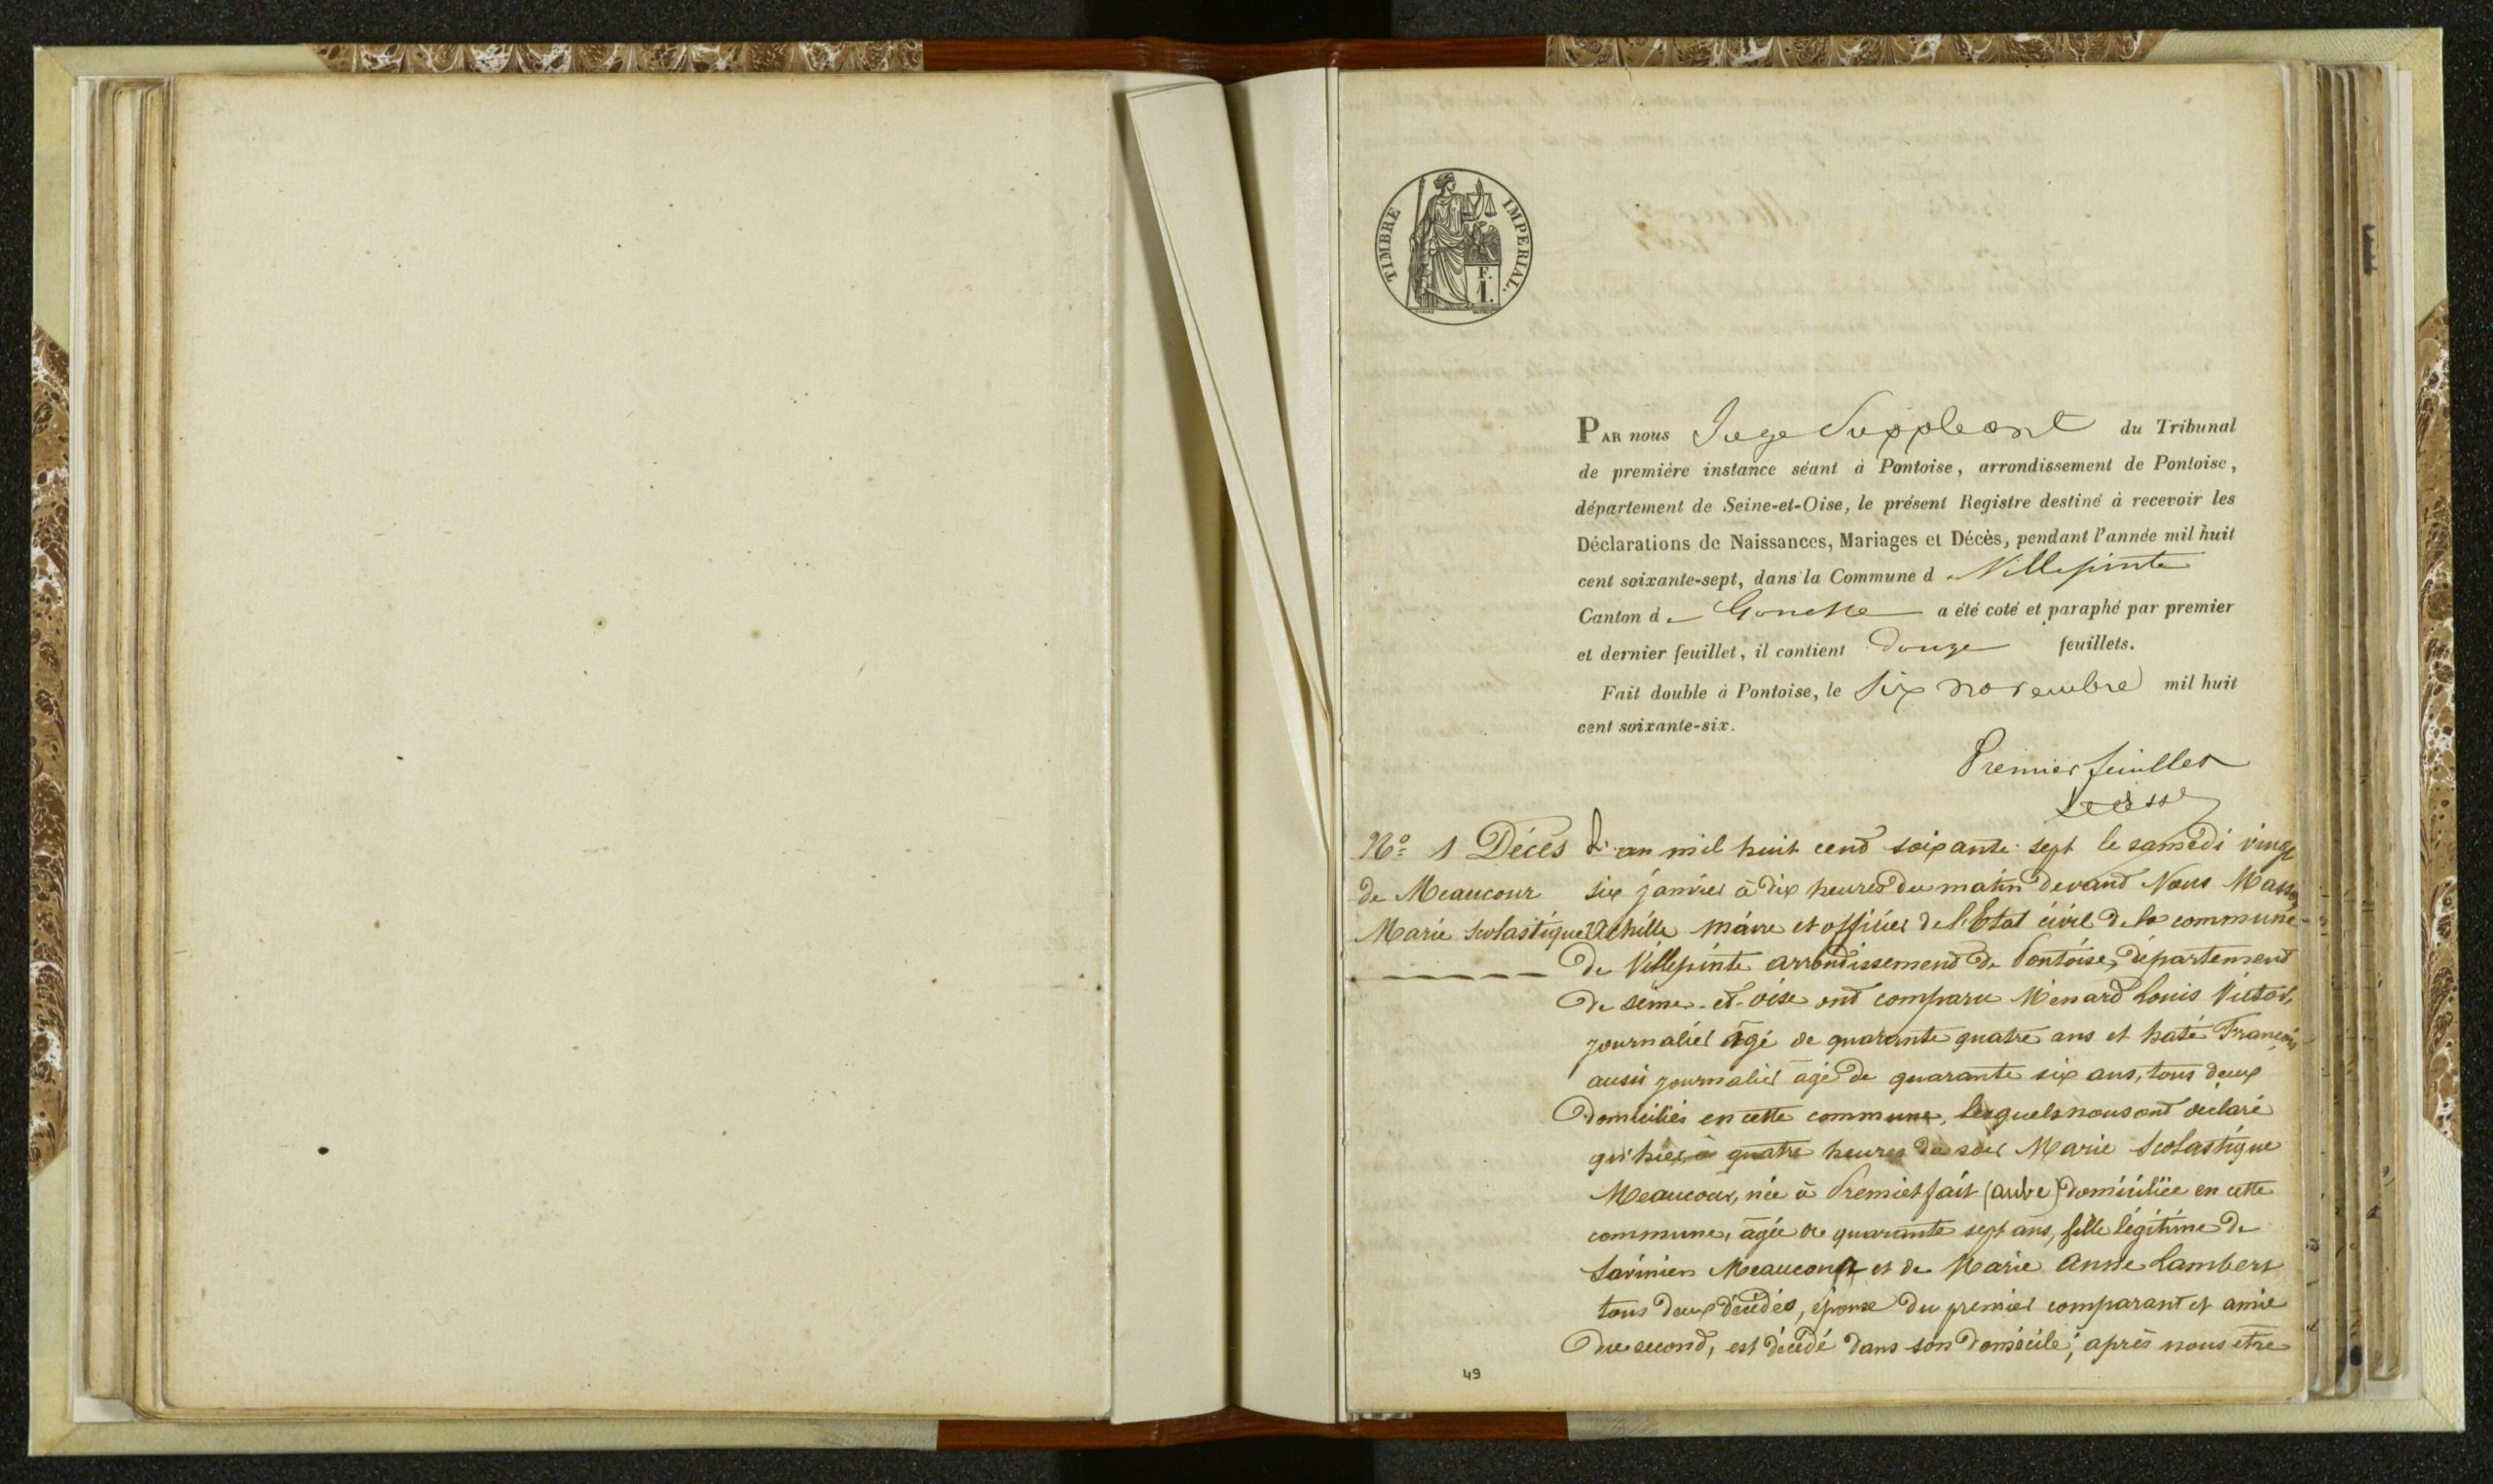 TIMBRE IMPERIAL.
F.
1.
PAR nous Juge Suppléant du Tribunal
de première instance séant à Pontoise, arrondissement de Pontoise,
département de Seine-et-Oise, le présent Registre destiné à recevoir les
Déclarations de Naissances, Mariages et Décès, pendant l'année mil huit
cent soixante-sept, dans la Commune d e Villepinte
Canton d e Gonesse a été coté et paraphé par premier
et dernier feuillet, il contient Douze feuillets.
Fait double à Pontoise, le Six novembre mil huit
cent soixante-six.
Premier feuillet
N.o 1 Décès
de Meaucour
Marie Scolastique
L'an mil huit cent soixante sept le samedi vingt
six janvier à dix heures du matin devant Nous Masson
Achille maire et officier de l'Etat civil de la commune
de Villepinte arrondissement de Pontoise, département
de seine-et-oise ont comparu Ménard Louis Victor,
journalier âgé de quarante quatre ans et haté François
aussi journalier âgé de quarante six ans, tous deux
domiciliés en cette commune, lesquels nous ont déclaré
qu'hier à quatre heures du soir Marie Scolastique
Meaucour, née à Premierfait (aube) domiciliée en cette
commune, âgée de quarante sept ans, fille légitime de
Savinien Meaucour et de Marie Anne Lambert
tous deux décédés, épouse du premier comparant et amie
du second, est décédé dans son domicile; après nous être
49